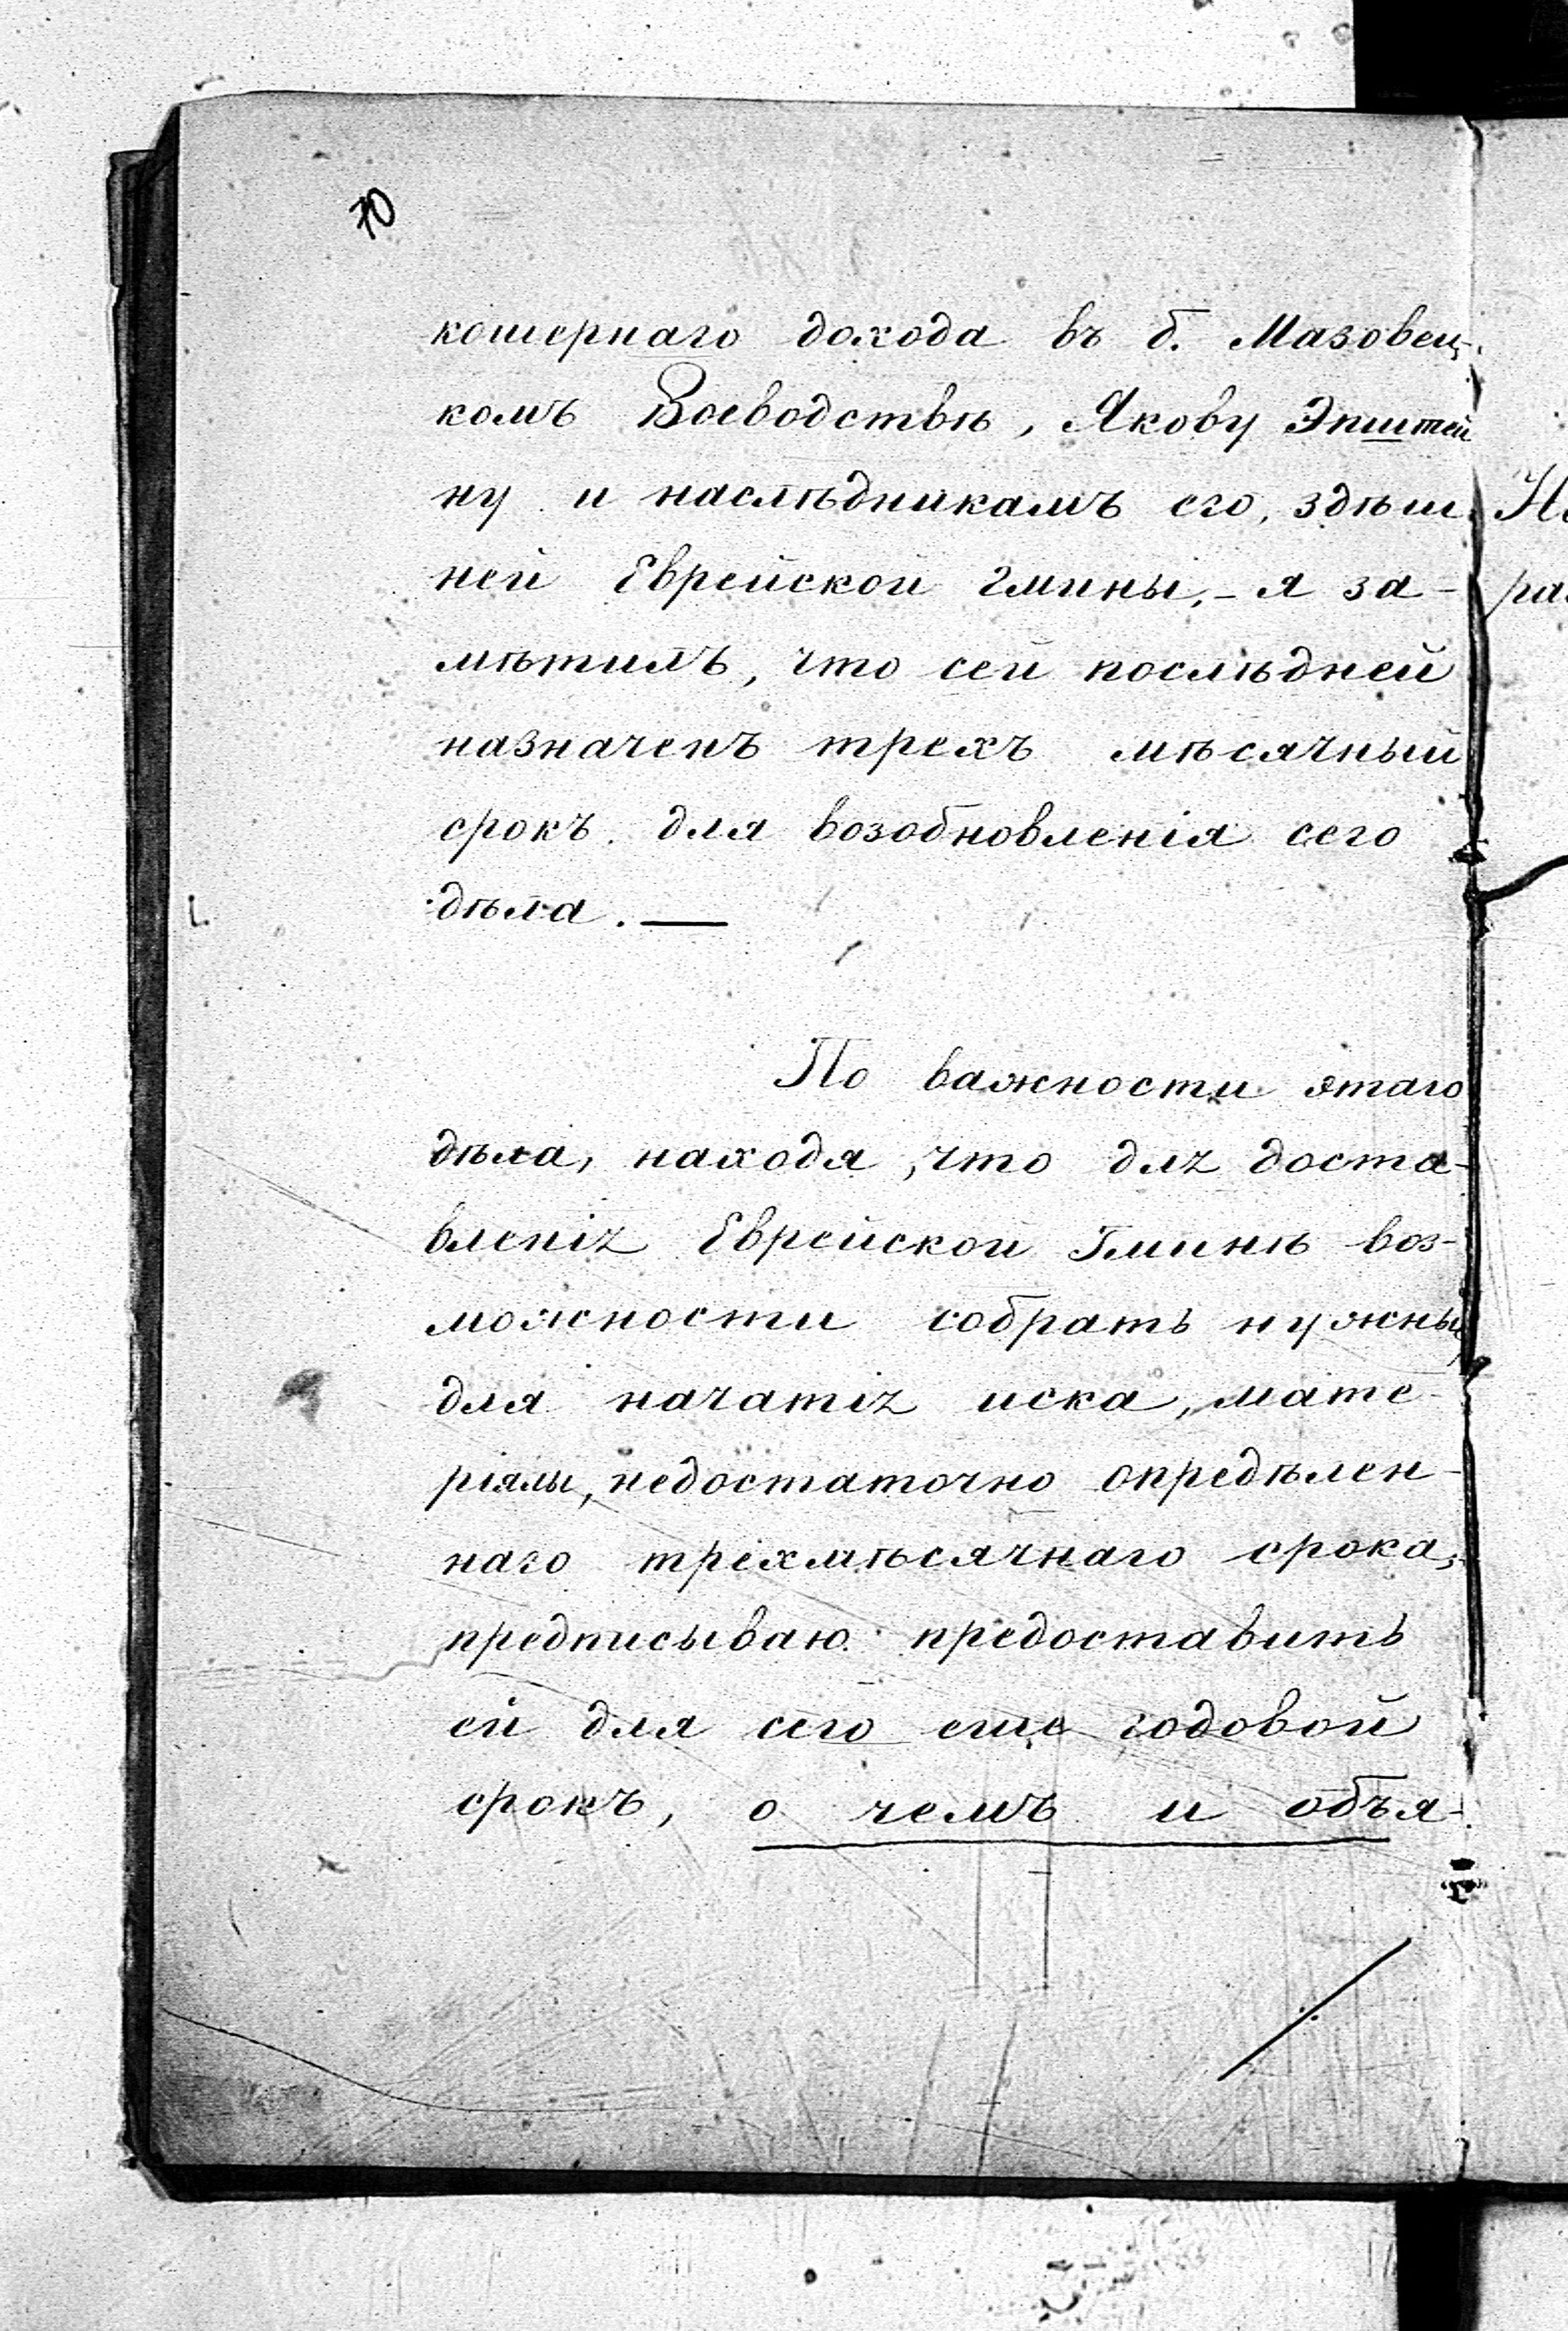 70
кошернаго дохода въ б. Мазовец-
комъ Воеводствѣ, Якову Эпштей
ну и наслѣдникамъ его, здѣш
ней Еврейской гмины, - я за-
мѣтилъ, что сей послѣдней
назначенъ трехъ мѣсячный
срокъ для возобновленія сего
дѣла. —
По важности этаго
дѣла, находя, что для доста-
вленія Еврейской Гминѣ воз-
можности собрать нужны
для начатія иска, мате-
ріялы, недостаточно опредѣлен-
наго трехмѣсячнаго срока,
предписываю предоставить
ей для сего еще годовой
срокъ, о чемъ и объя-